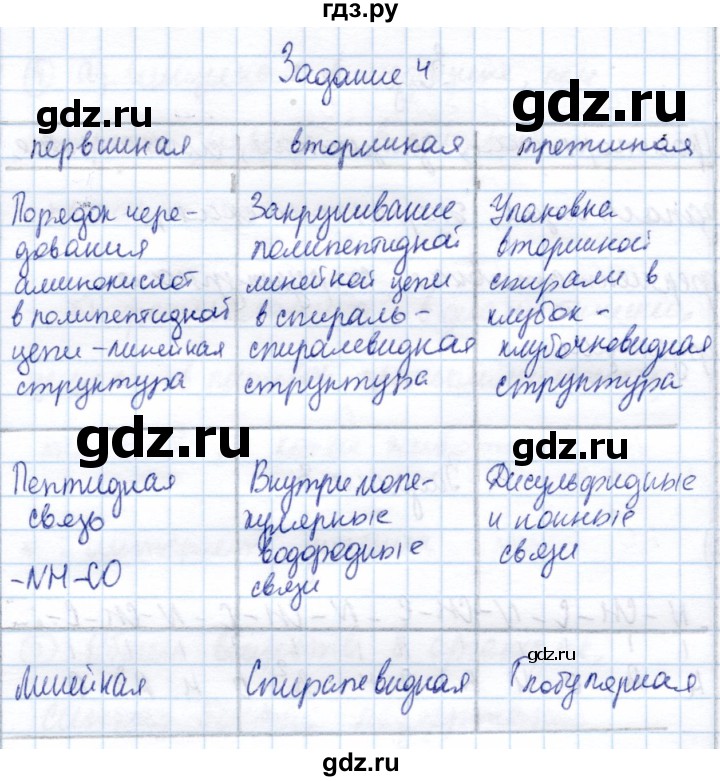 гдз.ру
Задание 4
gdz.ru
gdz.ru
первичная вторичная третичная
Порядок чере- Закручивание Упаковка
дования полипептидной вторичной
аминокислот линейной цепи спирали в
в полипептидной в спираль- клубок-
цепи-линейная спиралевидная клубочковидная
структура структура структура
gdz.ru
gdz.ru
Пептидная Внутримоле- Дисульфидные
связь кулярные и ионные
водородные связи
-NH-CO связи
gdz.ru
Линейная Спиралевидная Глобулярная
gdz.ru